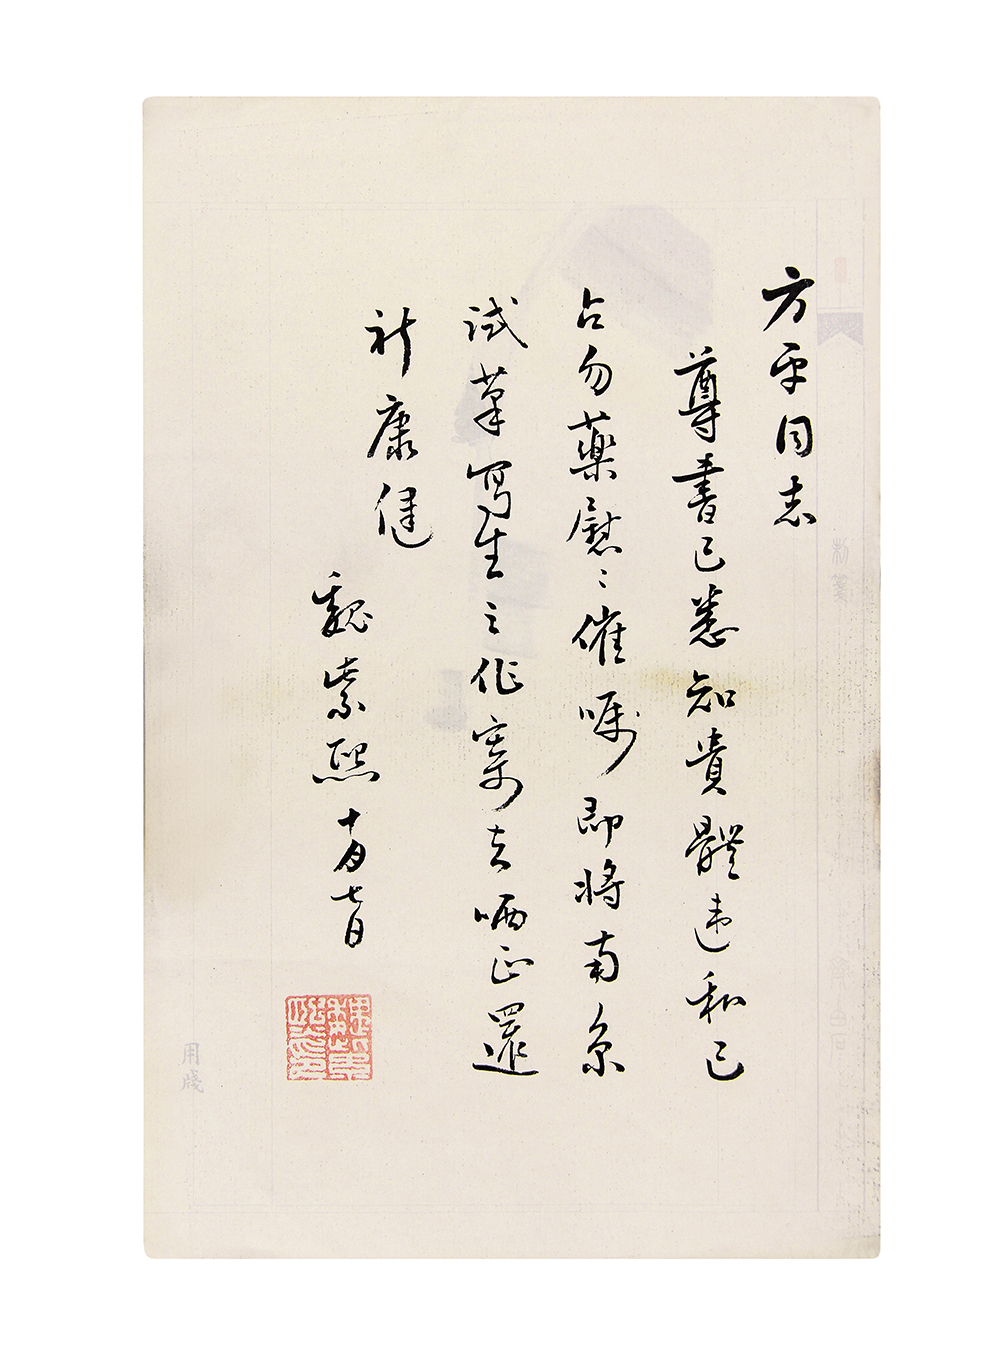 方平同志
尊書已悉知貴體違和已
占勿藥慰〻催嘱即将南京
试筆写生之作寄去哂正還
祈康健
魏紫熙十月七日
用牋